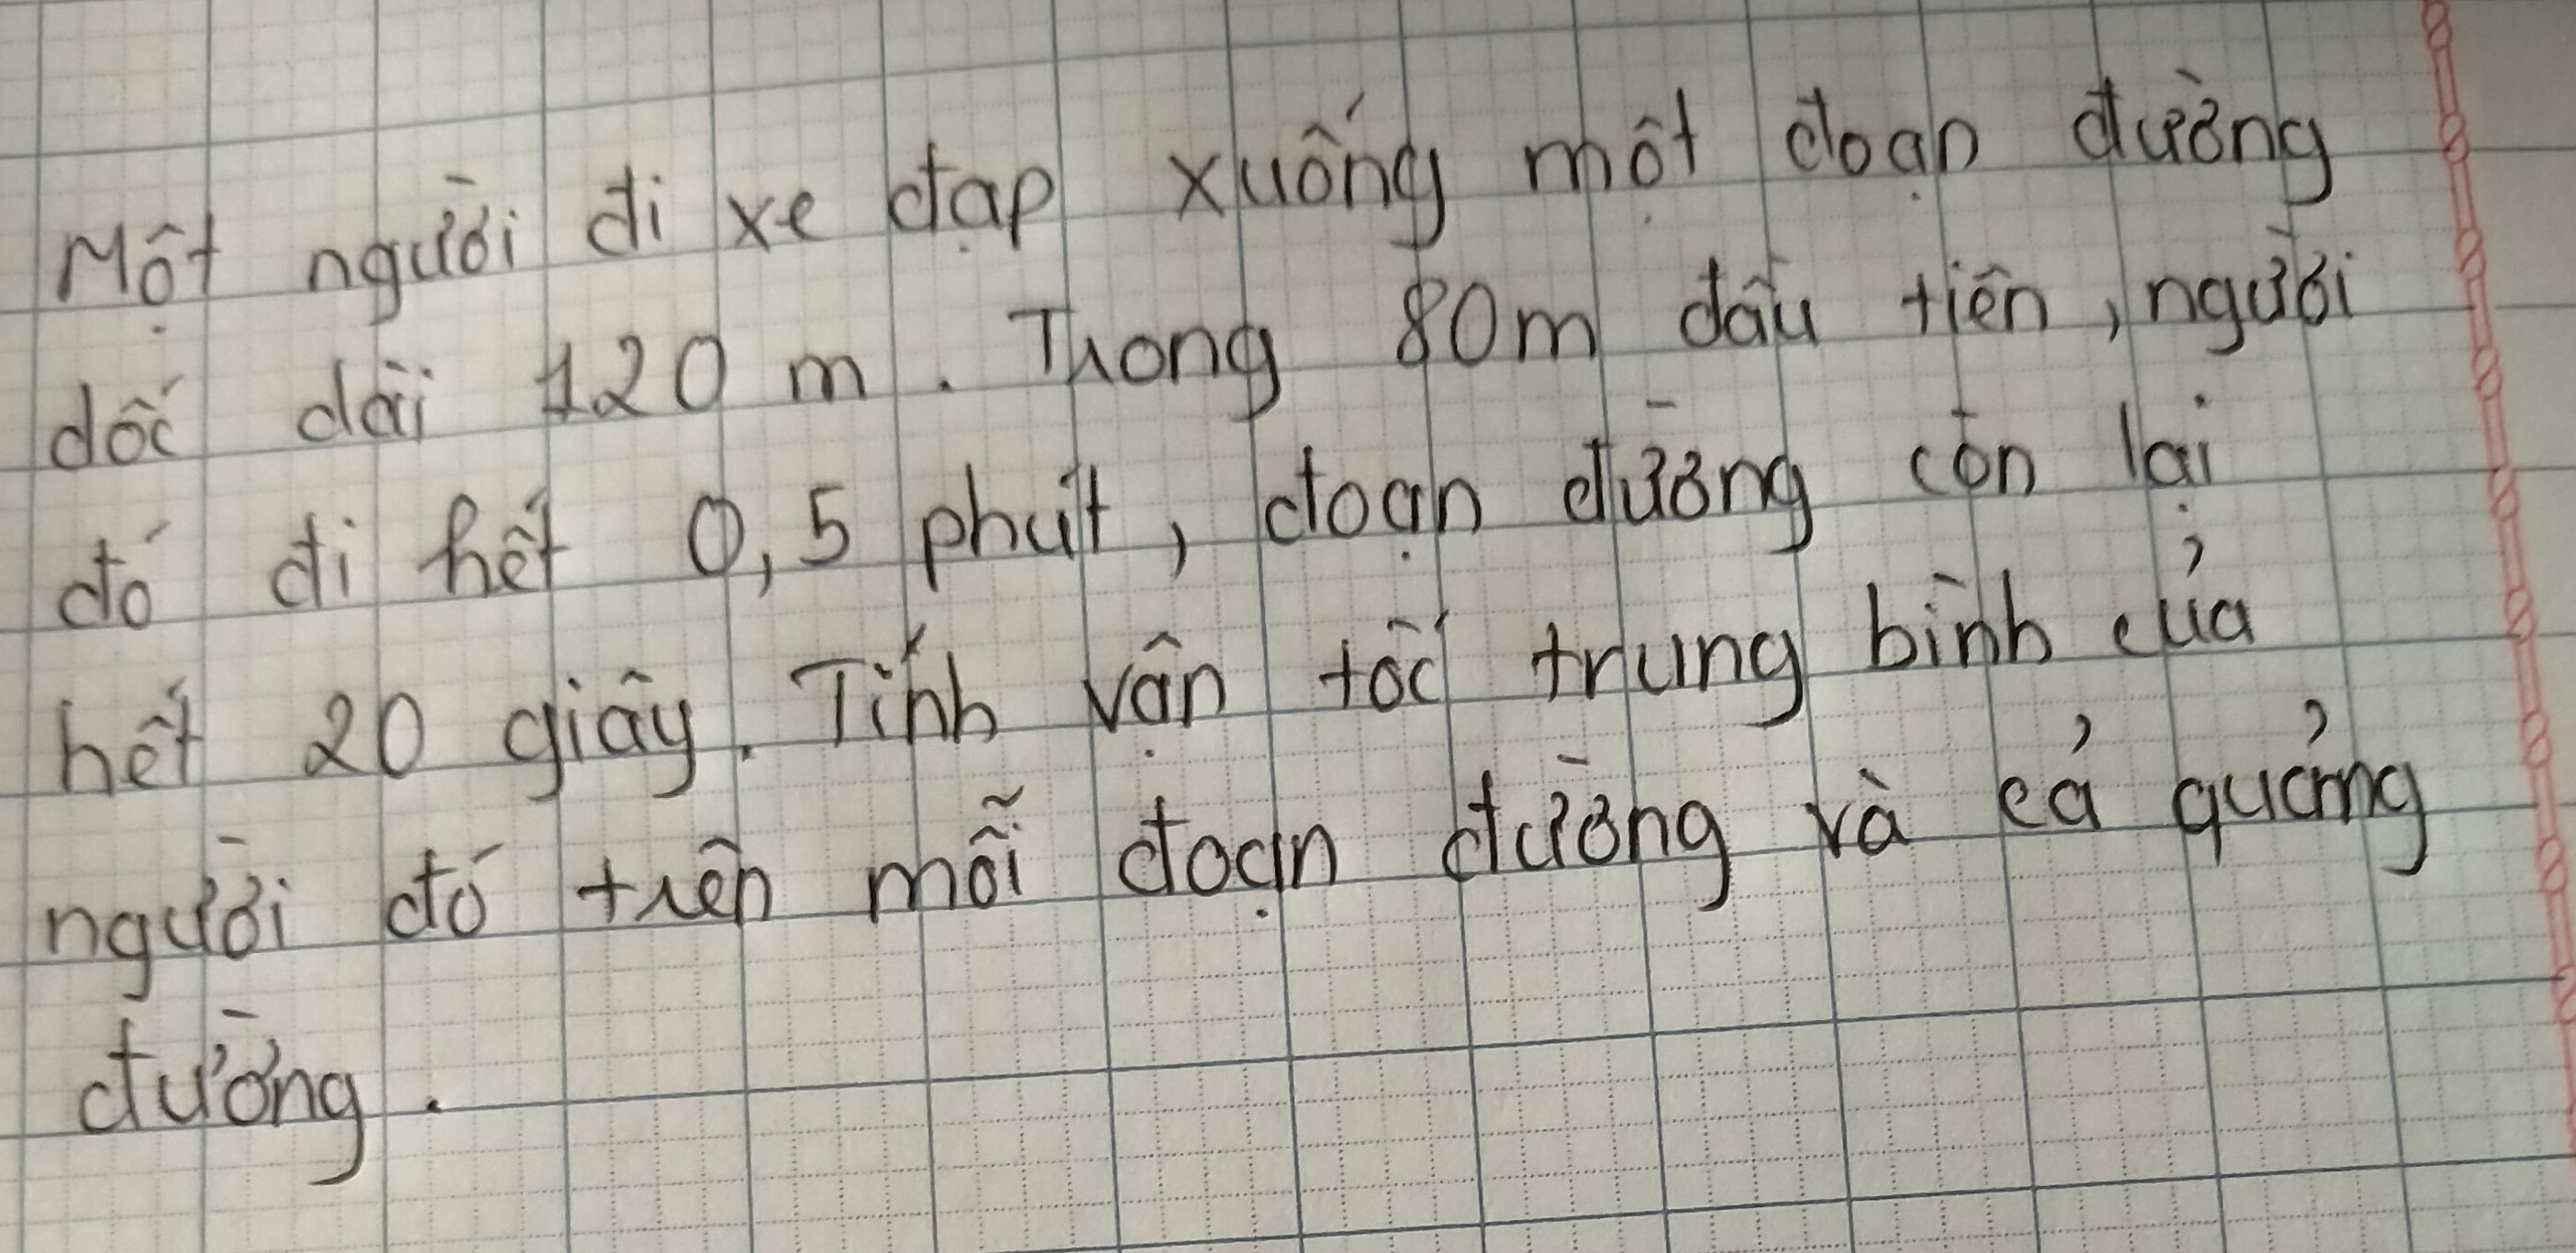 Một người đi xe đạp xuống một đoạn đường
dốc dài 120 m. Trong 80m đầu tiên, người
đó đi hết 0,5 phút, đoạn đường còn lại
hết 20 giây. Tính vận tốc trung bình của
người đó trên mỗi đoạn đường và cả quảng
đường.